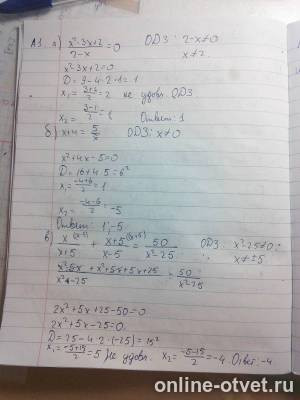 А1. а) x²-3x+2/2-x = 0 ОДЗ: 2-x≠0
x²-3x+2=0 x≠2
D = 9-4·2·1=1
x₁ = 3+1/2 = 2 не удовл. ОДЗ
x₂ = 3-1/2 = 1 Ответ: 1
б) x+4 = 5/x ОДЗ: x≠0
x²+4x-5=0
D= 16+4·5=6²
x₁ = -4+6/2 = 1
x₂ = -4-6/2 = -5
Ответ: 1;-5
в) x(x-5)/x+5 + x+5(x+5)/x-5 = 50/x²-25 ОДЗ: x²-25≠0
x≠±5
x²-5x + x²+5x+5x+25/x²-25 = 50/x²-25
2x²+5x+25-50=0
2x²+5x-25=0
D = 25-4·2·(-25) = 15²
x₁ = -5+15/2 = 5 Не удовл. x₂ = -5-15/2 = -4 Ответ: -4
online-otvet.ru